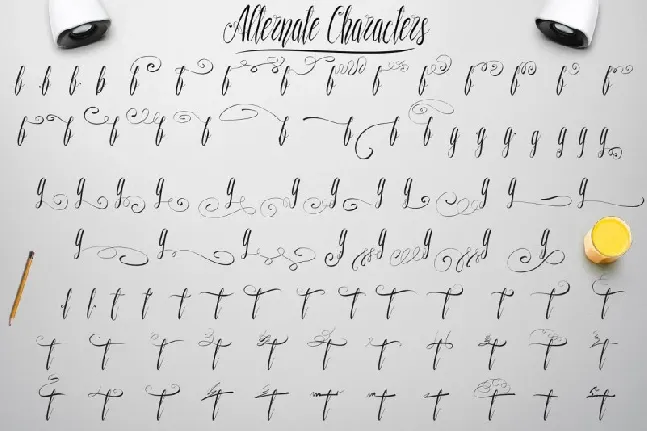 Alternate Characters
b b b b b b b b b b b b b b b
b b b b b b b b b g g g g g g g
g g g g g g g g g g g g
g g g g g g g g
t t t t t t t t t t t t t t
t t t t t t t t t t t
t t t t t t t t t t t